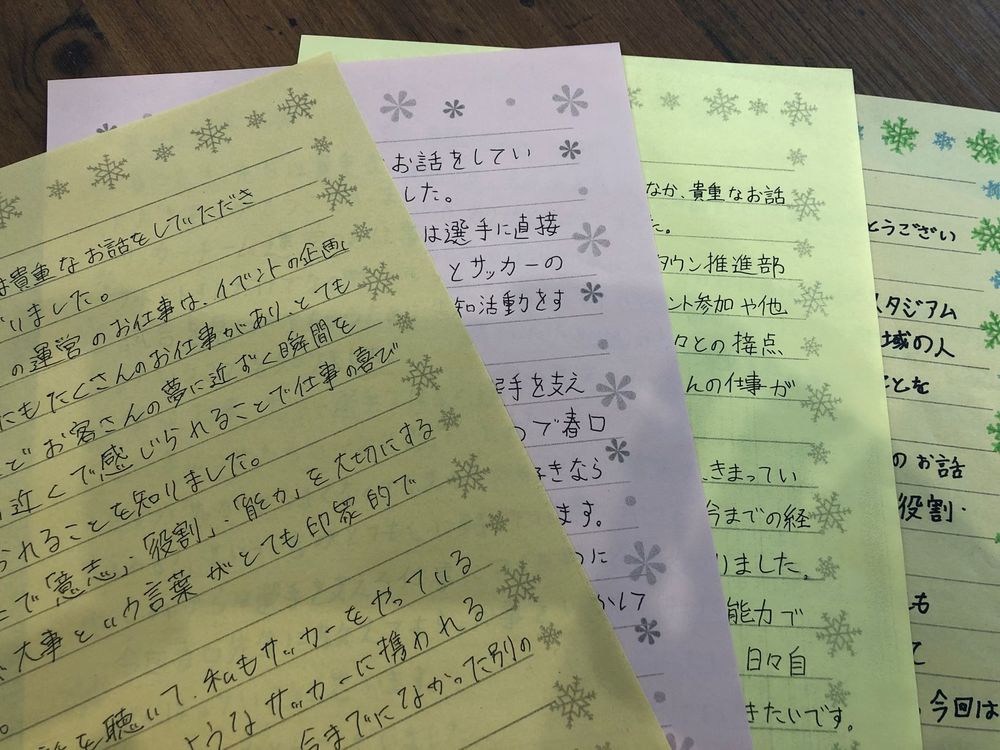 は貴重なお話をしていただき
いました。
の運営のお仕事は、イベントの企画
にもたくさんのお仕事があり、とても
どお客さんの夢に近ずく瞬間を
近くで感じられることで仕事の喜び
られることを知りました。
で「意志」・「役割」・「能力」を大切にする
大事という言葉がとても印象的で
を聴いて、私もサッカーをやっている
ようなサッカーに携われる
今までになかった別の
お話をしてい
した。
は選手に直接
とサッカーの
知活動をす
手を支え
で春口
きなら
ます。
に
かして
なか、貴重なお話
た。
タウン推進部
ント参加や他
々との接点
んの仕事が
きまってい
今までの経
りました。
能力で
日々自
きたいです。
とうござい
スタジアム
域の人
ことを
のお話
役割・
も
て
、今回は